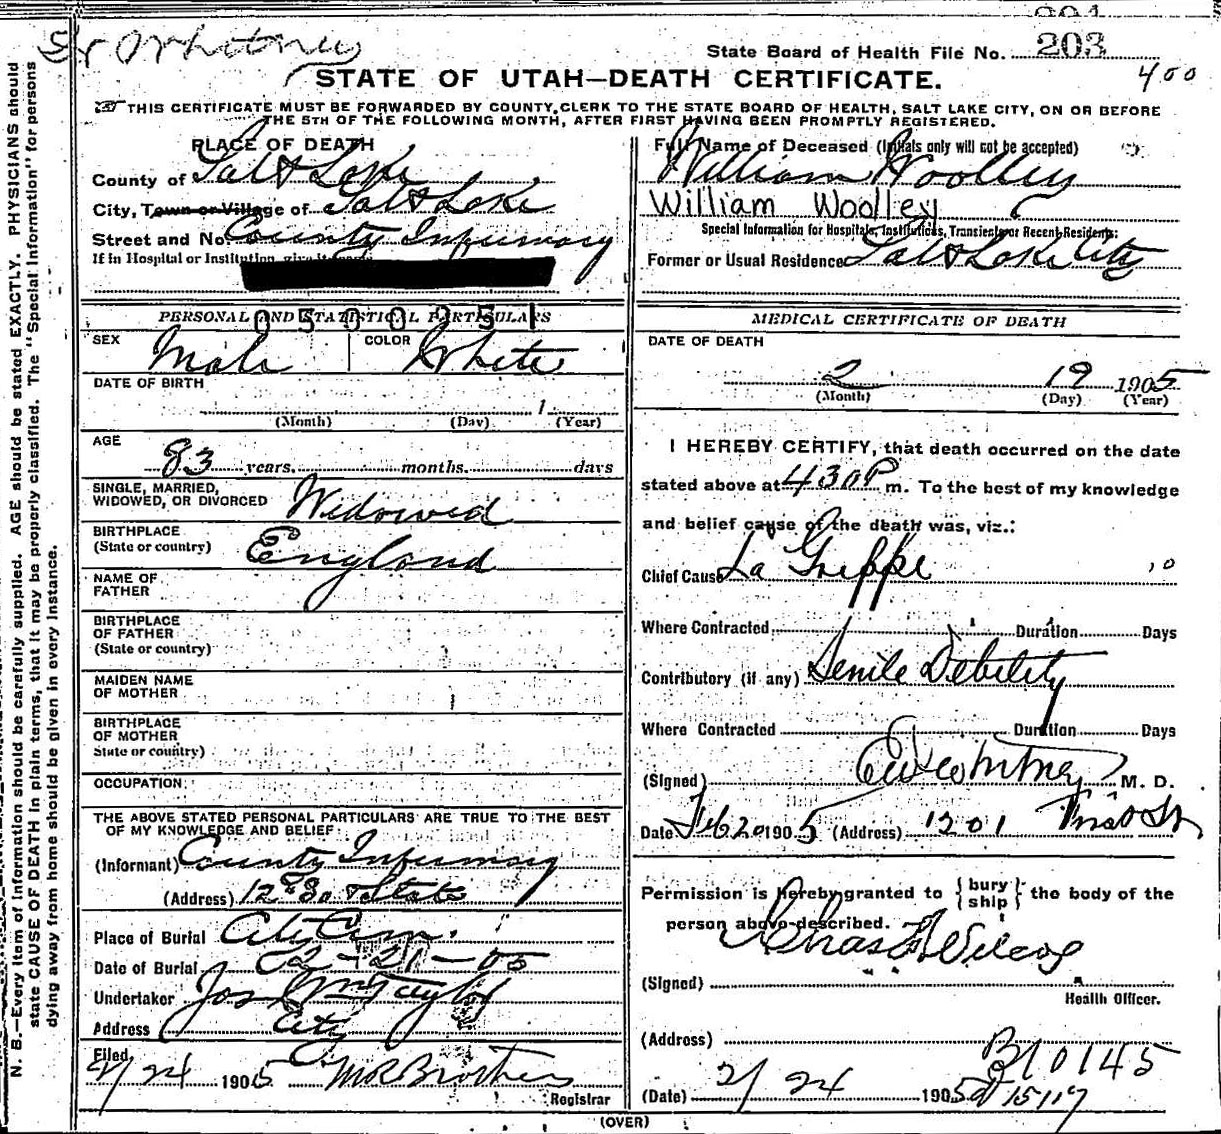 203
State Board of Health File No. 203
400
STATE OF UTAH—DEATH CERTIFICATE.
THIS CERTIFICATE MUST BE FORWARDED BY COUNTY CLERK TO THE STATE BOARD OF HEALTH, SALT LAKE CITY, ON OR BEFORE
THE 5TH OF THE FOLLOWING MONTH, AFTER FIRST HAVING BEEN PROMPTLY REGISTERED.
N. B.—Every item of information should be carefully supplied. AGE should be stated EXACTLY. PHYSICIANS should
state CAUSE OF DEATH in plain terms, that it may be properly classified. The "Special Information" for persons
dying away from home should be given in every instance.
PLACE OF DEATH
County of Salt Lake
City, Town or Village of Salt Lake
Street and No. County Infirmary
If in Hospital or Institution, give its name
0500251
PERSONAL AND STATISTICAL PARTICULARS
SEX Male COLOR White
DATE OF BIRTH
1
(Month) (Day) (Year)
AGE
83 years. months. days
SINGLE, MARRIED,
WIDOWED, OR DIVORCED Widowed
BIRTHPLACE
(State or country) England
NAME OF
FATHER
BIRTHPLACE
OF FATHER
(State or country)
MAIDEN NAME
OF MOTHER
BIRTHPLACE
OF MOTHER
State or country)
OCCUPATION
THE ABOVE STATED PERSONAL PARTICULARS ARE TRUE TO THE BEST
OF MY KNOWLEDGE AND BELIEF:
(Informant) County Infirmary
(Address) State
Place of Burial City Cem.
Date of Burial 02-21-05
Undertaker Jos Wm Taylor
Address City
Filed
2/24 1905 M R Brothers
Registrar
Full Name of Deceased (Initials only will not be accepted)
William Woolley
William Woolley
Special Information for Hospitals, Institutions, Transients or Recent Residents:
Former or Usual Residence Salt Lake City
MEDICAL CERTIFICATE OF DEATH
DATE OF DEATH
2 19 1905
(Month) (Day) (Year)
I HEREBY CERTIFY, that death occurred on the date
stated above at 430 P m. To the best of my knowledge
and belief cause of the death was, viz.:
Chief Cause La Grippe 10
Where Contracted Duration Days
Contributory (if any) Senile Debility
Where Contracted Duration Days
(Signed) Ew Whitney M. D.
Date Feb 20 1905 (Address) 1201
Permission is hereby granted to {bury ship} the body of the
person above described.
Chas F Wilcox
(Signed)
Health Officer.
(Address)
B10145
(Date) 2/24 1905
15117
(OVER)